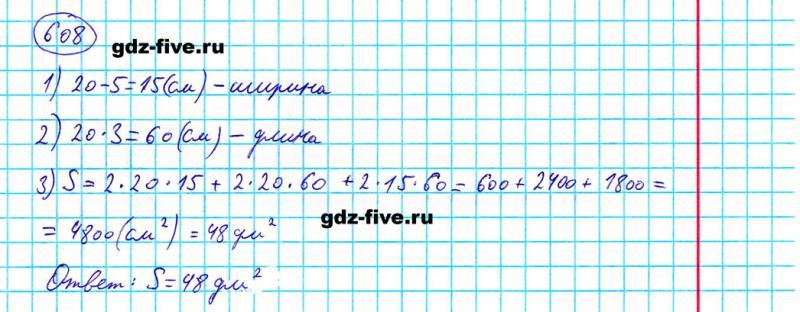 608
gdz-five.ru
1) 20-5=15(см) - ширина
2) 20·3=60(см) - длина
3) S=2·20·15+2·20·60+2·15·60=600+2400+1800=
=4800(см²)=48дм²
gdz-five.ru
Ответ: S=48дм²